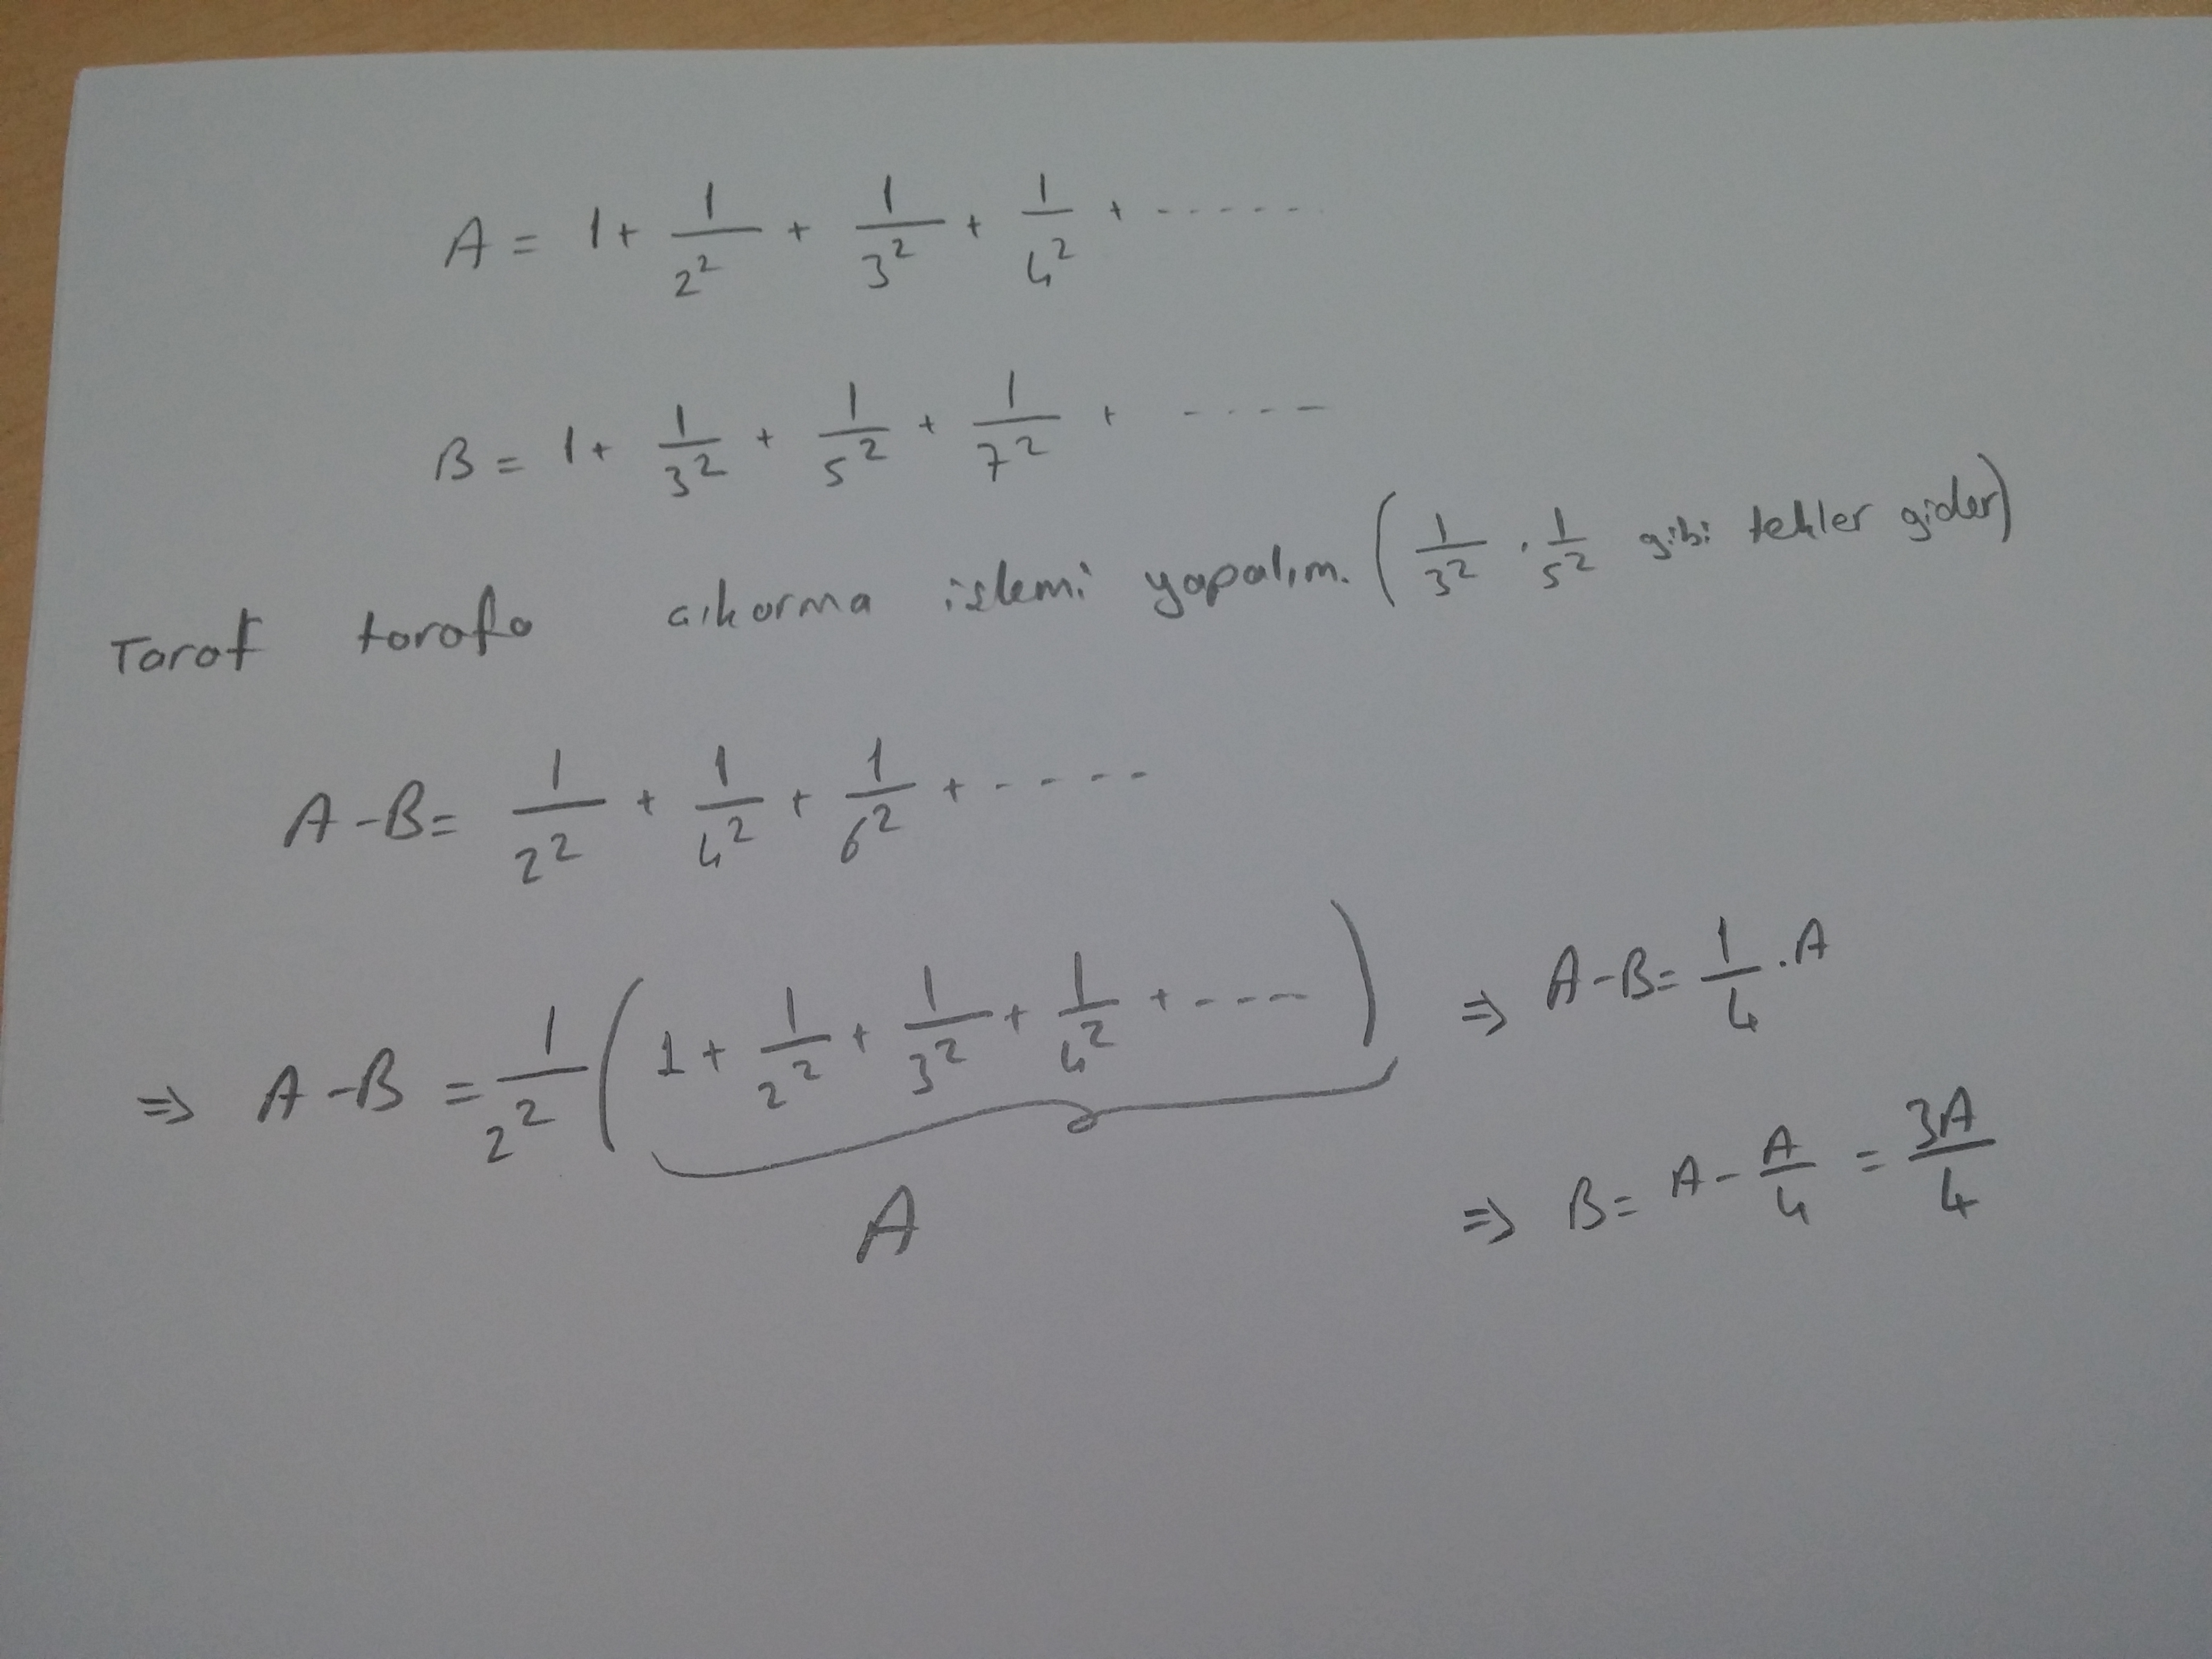 A = 1 + 1/2² + 1/3² + 1/4² + ......
B = 1 + 1/3² + 1/5² + 1/7² + ....
Taraf tarafa çıkarma işlemi yapalım. (1/3² , 1/5² gibi tekler gider)
A - B = 1/2² + 1/4² + 1/6² + ....
⇒ A - B = 1/2² (1 + 1/2² + 1/3² + 1/4² + ....) ⇒ A - B = 1/4 . A
A
⇒ B = A - A/4 = 3A/4